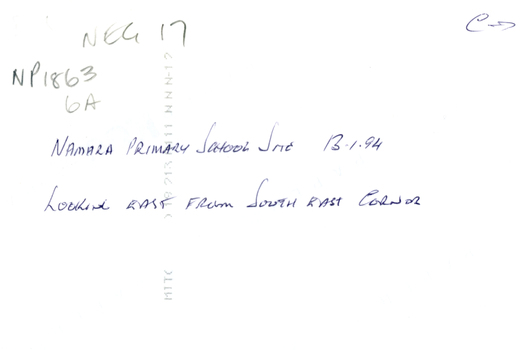 NEG 17
C→
NP1863
6A
NAMARA PRIMARY SCHOOL SITE 13.1.94
LOOKING EAST FROM SOUTH EAST CORNOR